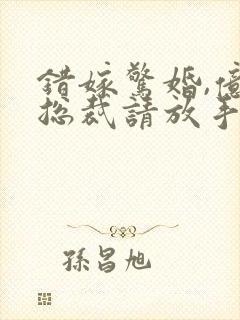 錯嫁驚婚,億
總裁請放手
孫昌旭